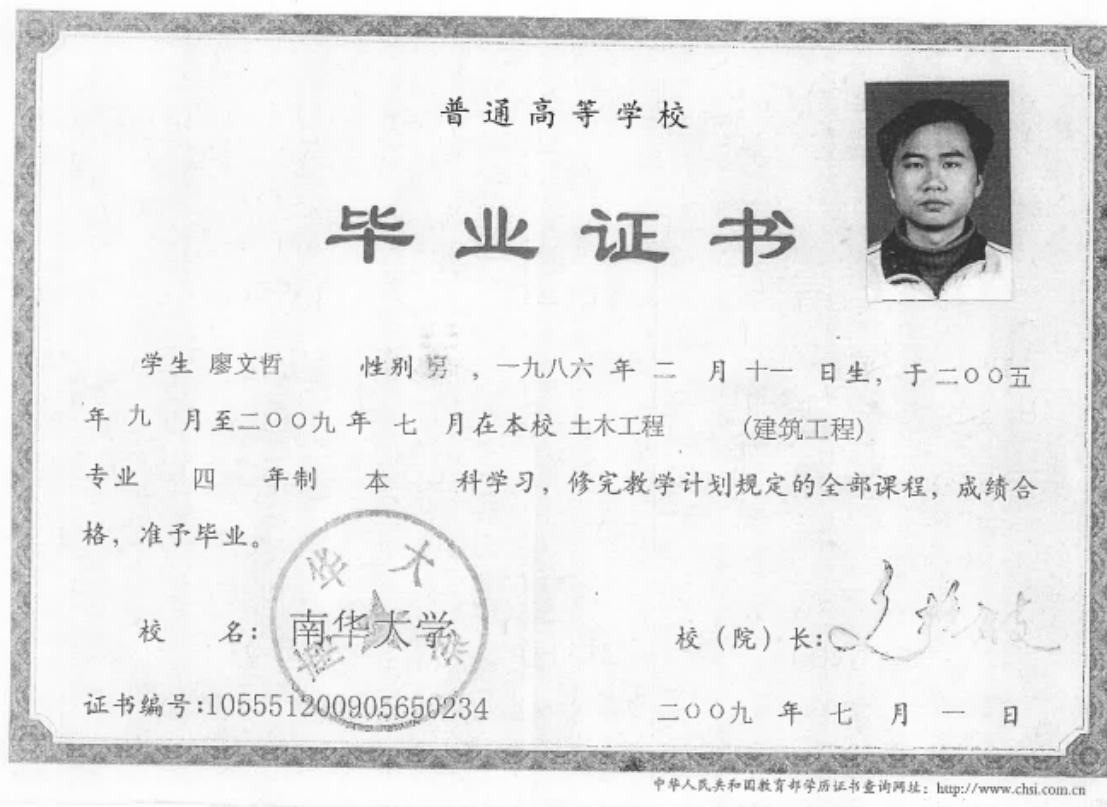 普通高等学校
毕业证书
学生 廖文哲 性别 男 ，一九八六 年 二 月 十一 日生，于 二〇〇五
年 九 月至二〇〇九 年 七 月在本校 土木工程 (建筑工程)
专业 四 年制 本 科学习，修完教学计划规定的全部课程，成绩合
格，准予毕业。
校 名：南华大学
校（院）长：
证书编号:105551200905650234
二〇〇九 年 七 月 一 日
中华人民共和国教育部学历证书查询网址：http://www.chsi.com.cn